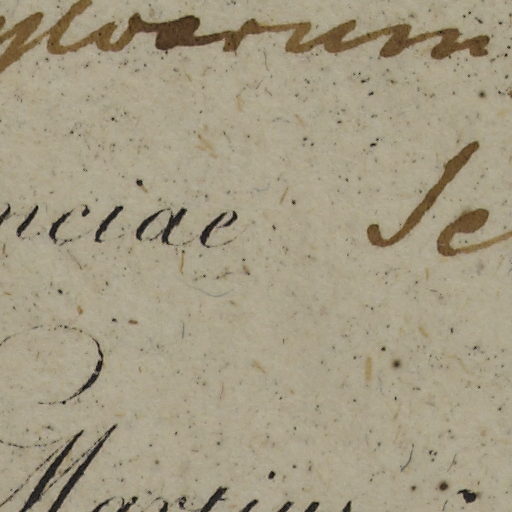 ylvarum
nciae Se
Martius